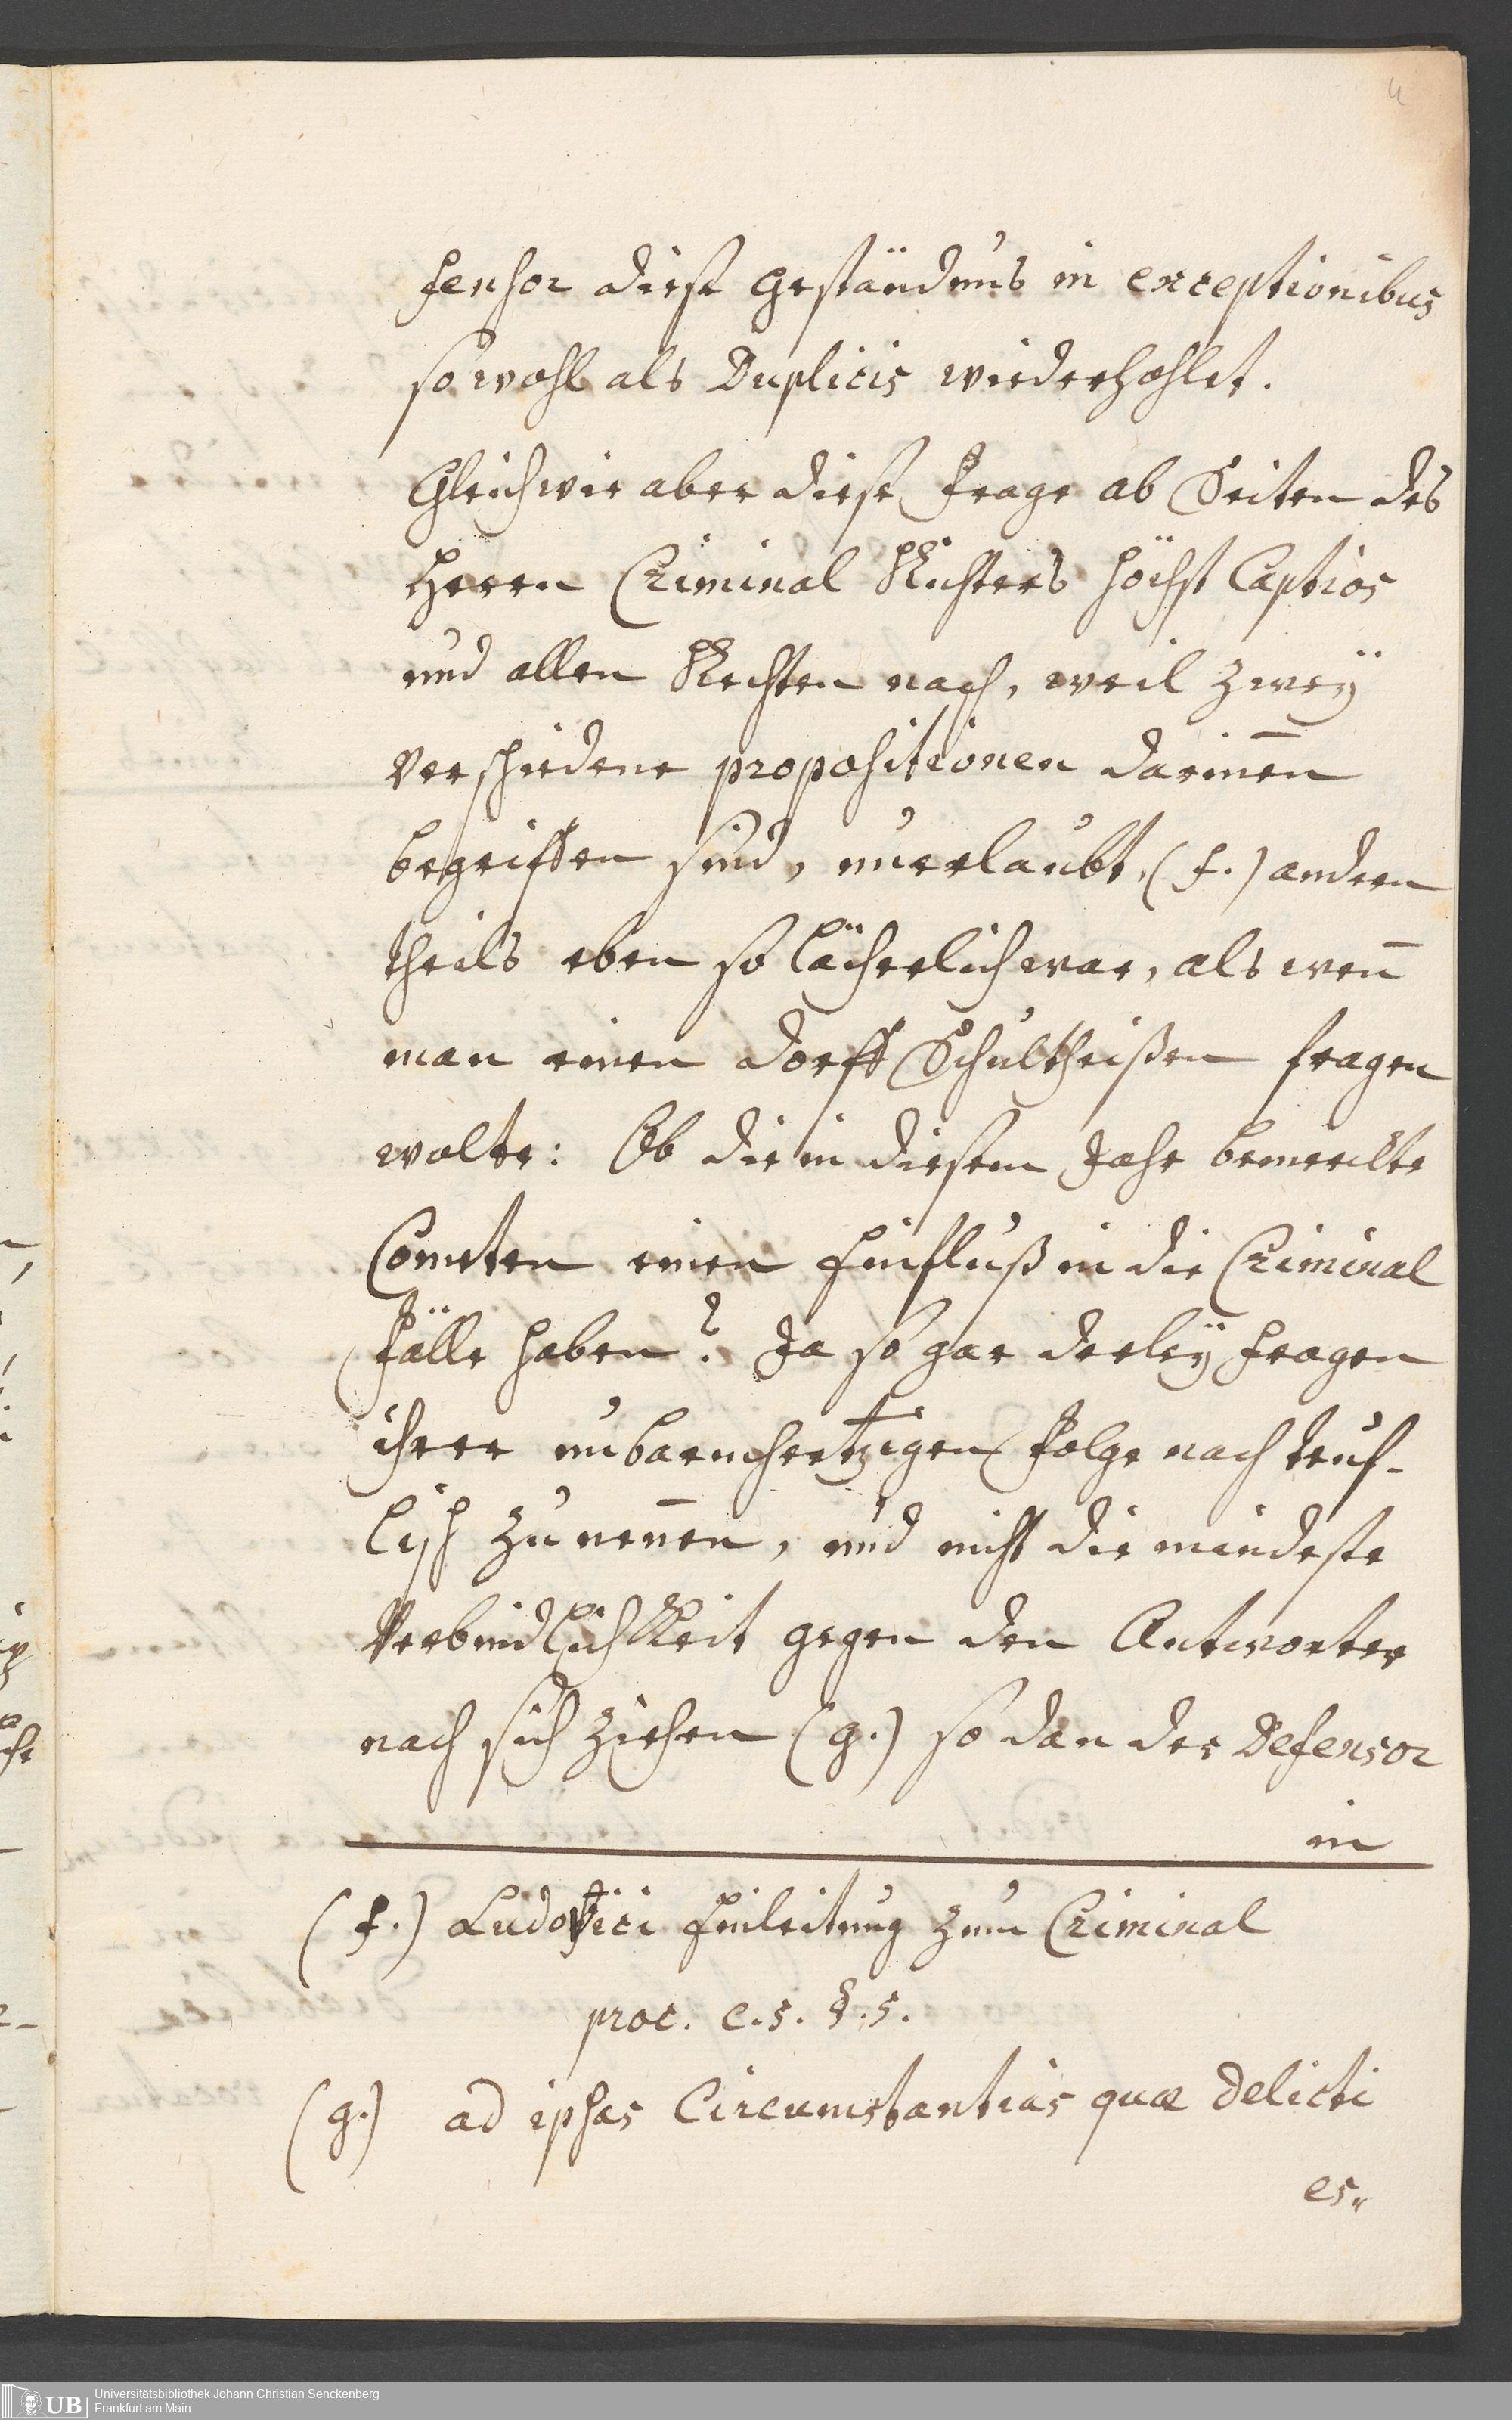 4
fensor diese Geständnus in exceptionibus
so wohl als Duplicis wiederhohlet.
Gleichwie aber diese Frage ab Seiten des
Herrn Criminal Richters höchst Captios
und allen Rechten nach, weil zweÿ
verschiedene propositionen darinn̄en
begriffen sind, unerlaubt, (f.) andern
theils eben so lächerlich war, als wen̄
man einen Dorff Schultheißen fragen
wolte: Ob die in diesem Jahr bemerckte
Cometen einen Einfluß in die Criminal
Fälle haben? Ja so gar derleÿ Fragen
ihrer unbarmhertzigen Folge nach teuf-
lisch zu nen̄en, und nicht die mindeste
Verbindlichkeit gegen den Antworter
nach sich ziehen (g.) so dan der Defensor
in
(f.) Ludovici Einleitung zum Criminal
proc. c. 5. §. 5.
(g.) ad ipsas Circumstantias quæ delicti
es„
UB Universitätsbibliothek Johann Christian Senckenberg
Frankfurt am Main